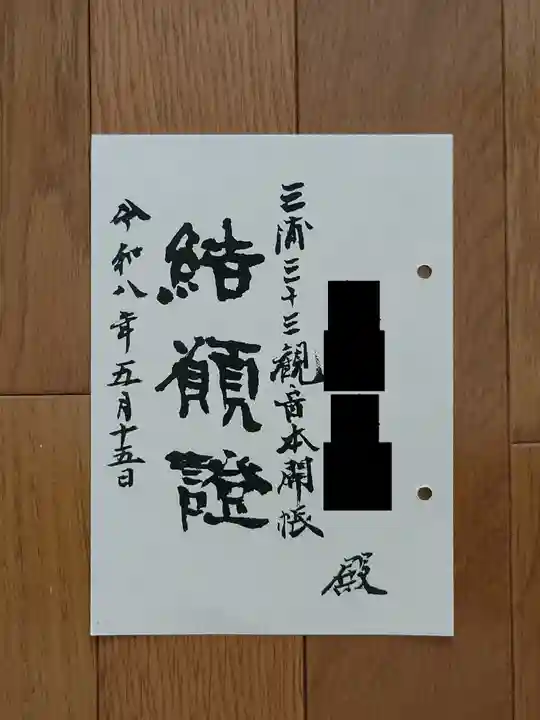 殿
三浦三十三観音本開帳
結願證
令和八年五月十五日